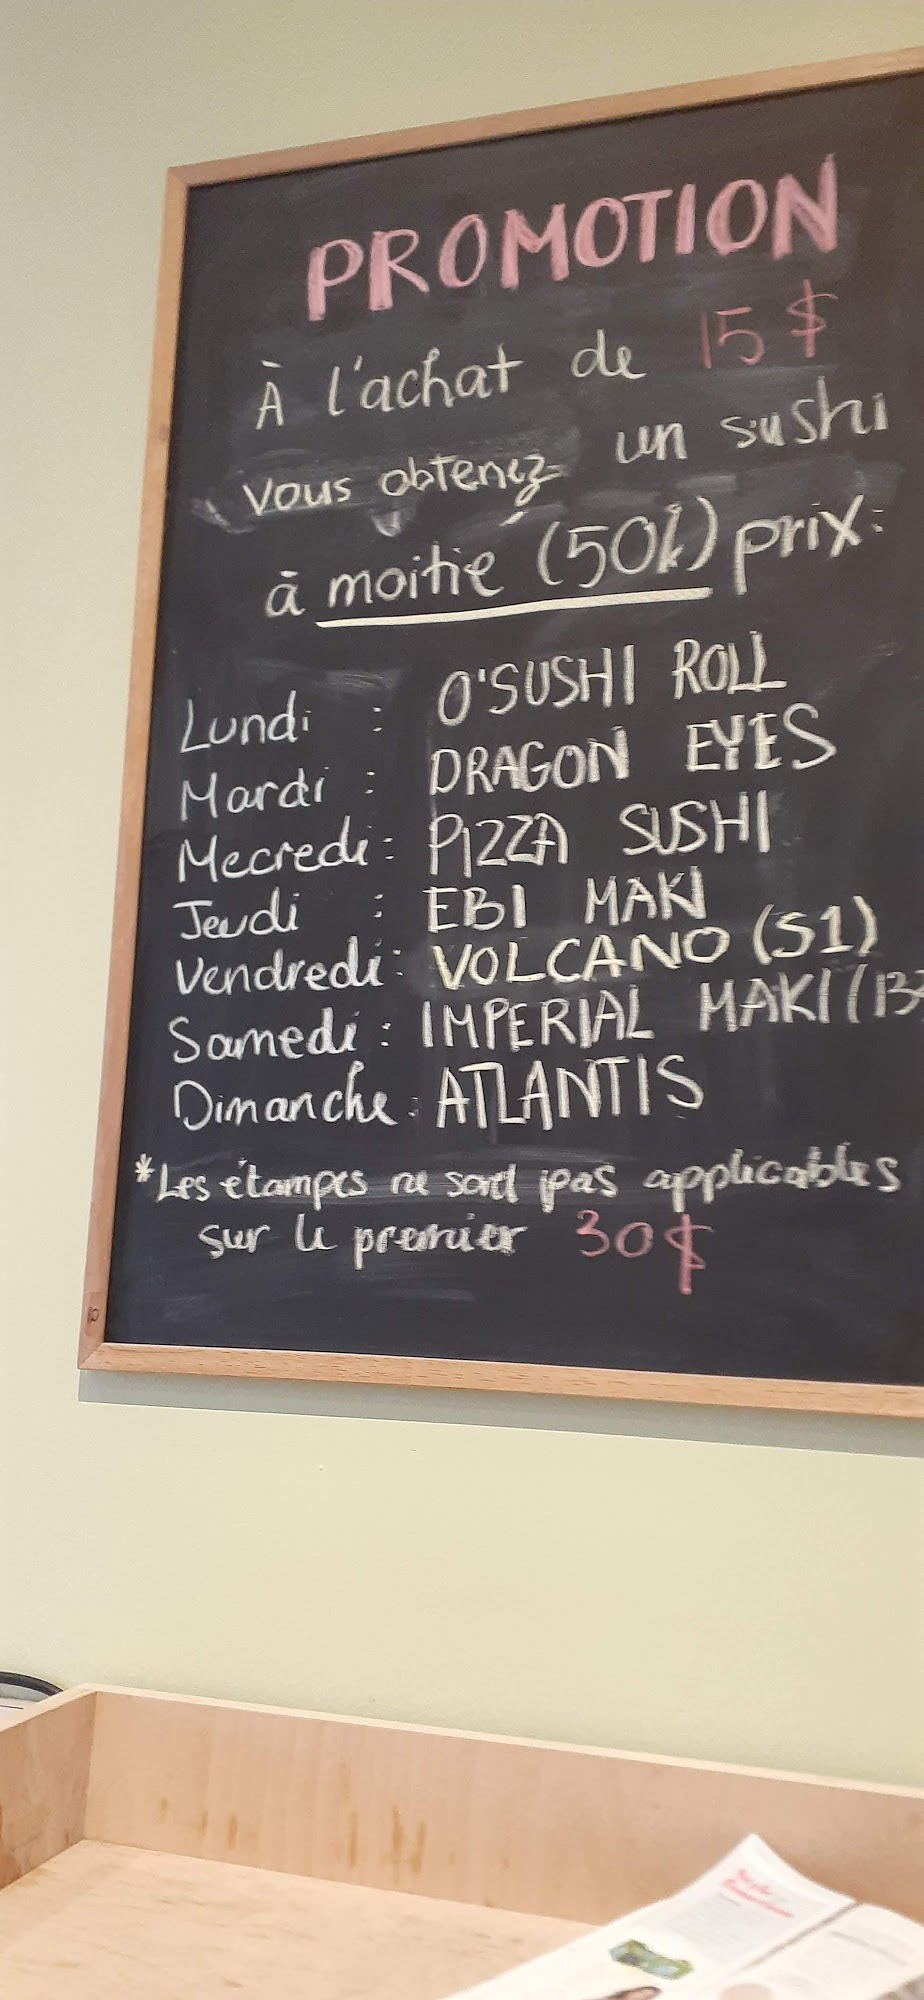 PROMOTION
À l'achat de 15$
vous obtenez un sushi
à moitié (50%) prix:
Lundi : O'SUSHI ROLL
Mardi : DRAGON EYES
Mecredi : PIZZA SUSHI
Jeudi : EBI MAKI
Vendredi : VOLCANO (S1)
Samedi : IMPERIAL MAKI
Dimanche : ATLANTIS
*Les étampes ne sont pas applicables
sur le premier 30$